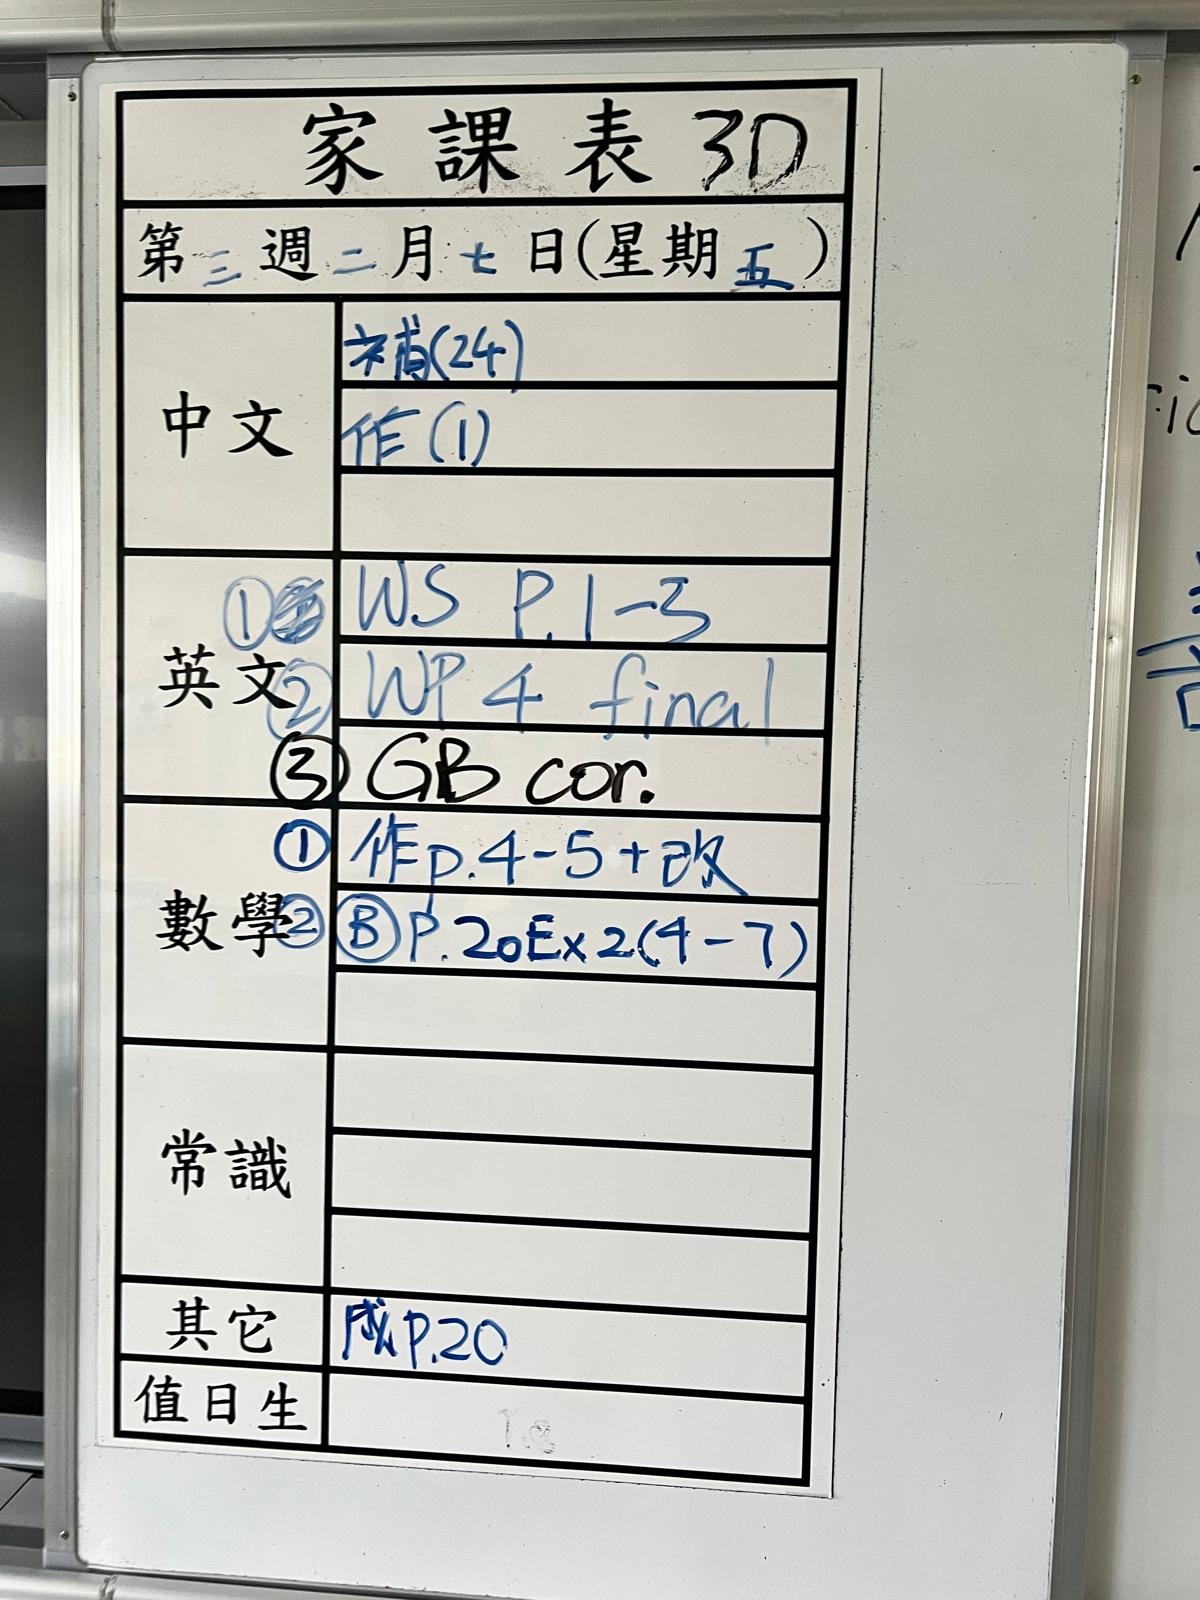 家課表 3D
第三週二月七日(星期五)
中文
補(24)
作(1)
英文
① WS P.1-3
② WP 4 final
③ GB cor.
數學
① 作p.4-5+改
② Ⓑ P.20Ex2(4-7)
常識
其它
成P.20
值日生